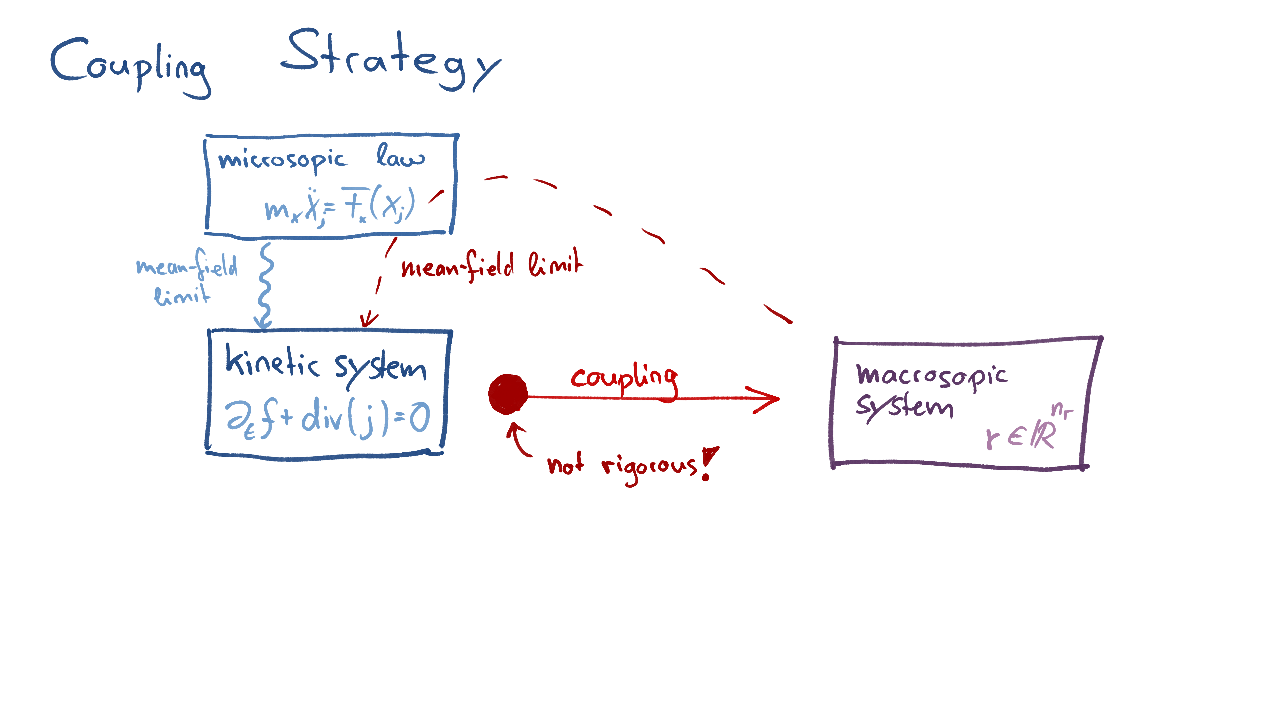 Coupling Strategy
microsopic law
mₓẍⱼ = Fₓ(xⱼ)
mean-field
limit
mean-field limit
kinetic system
∂ₜf + div(j) = 0
coupling
not rigorous!
macrosopic
system
r ∈ ℝⁿʳ